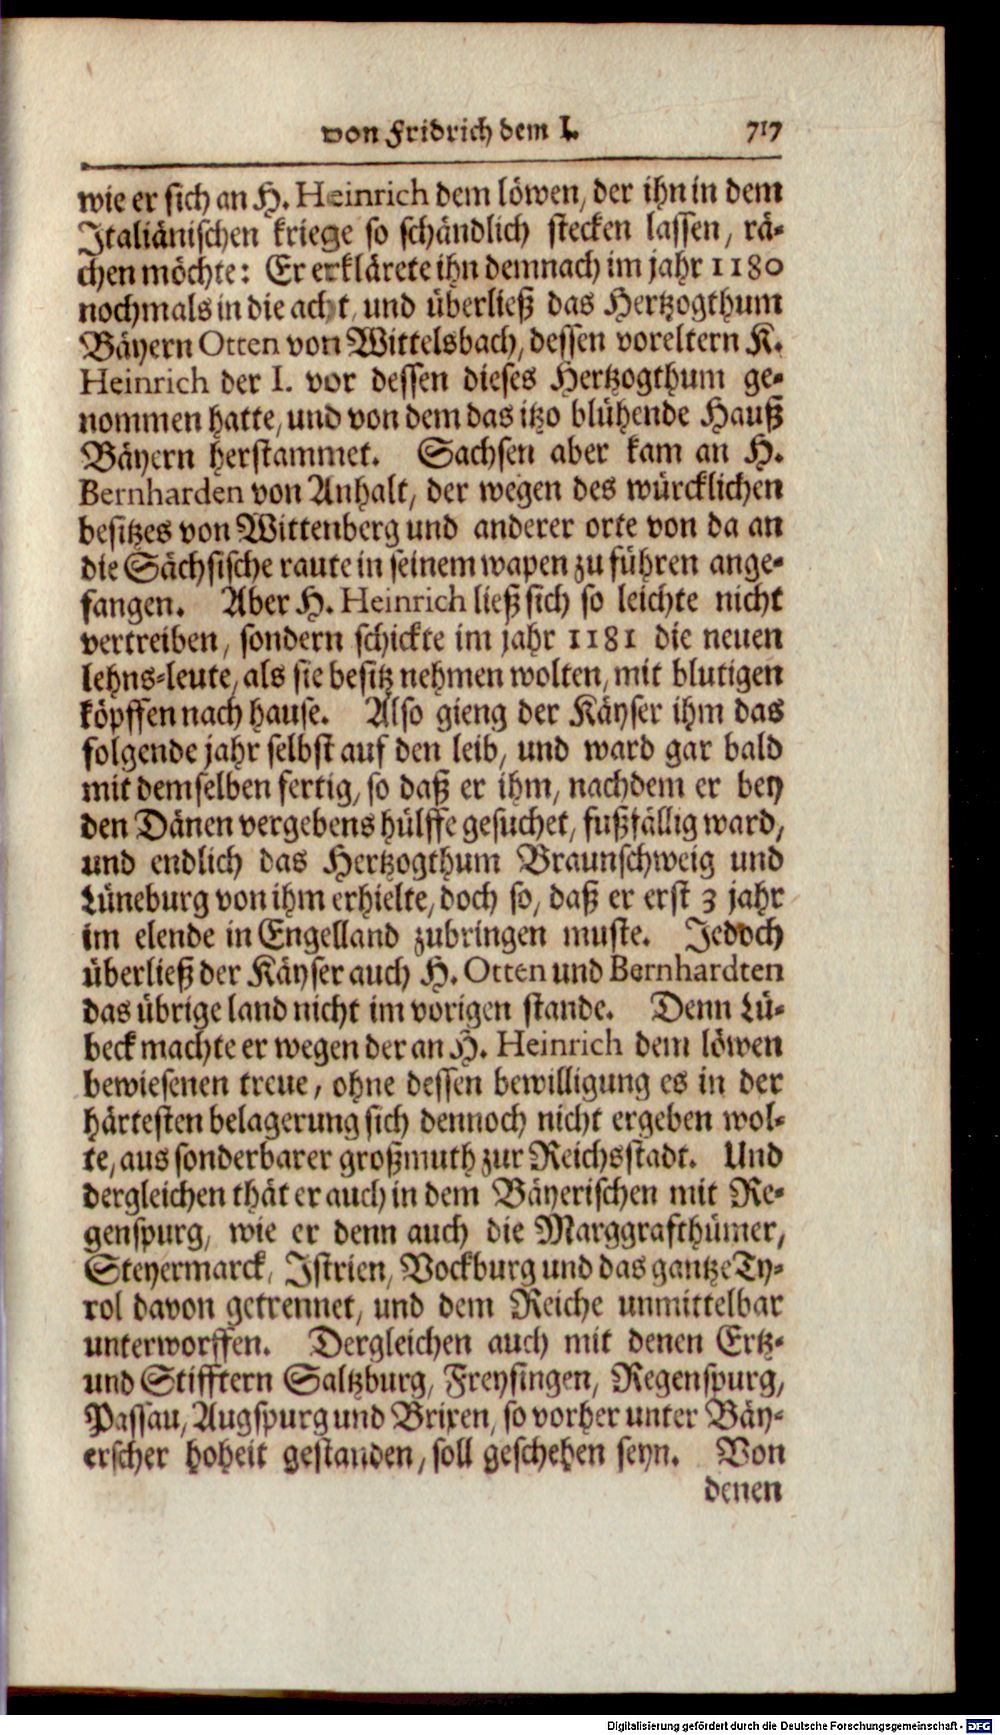 von Fridrich dem I. 717
wie er sich an H. Heinrich dem löwen, der ihn in dem
Italiänischen kriege so schändlich stecken lassen, rä-
chen möchte: Er erklärete ihn demnach im jahr 1180
nochmals in die acht, und überließ das Hertzogthum
Bäyern Otten von Wittelsbach, dessen voreltern K.
Heinrich der I. vor dessen dieses Hertzogthum ge-
nommen hatte, und von dem das itzo blühende Hauß
Bäyern herstammet. Sachsen aber kam an H.
Bernharden von Anhalt, der wegen des würcklichen
besitzes von Wittenberg und anderer orte von da an
die Sächsische raute in seinem wapen zu führen ange-
fangen. Aber H. Heinrich ließ sich so leichte nicht
vertreiben, sondern schickte im jahr 1181 die neuen
lehns-leute, als sie besitz nehmen wolten, mit blutigen
köpffen nach hause. Also gieng der Käyser ihm das
folgende jahr selbst auf den leib, und ward gar bald
mit demselben fertig, so daß er ihm, nachdem er bey
den Dänen vergebens hülffe gesuchet, fußfällig ward,
und endlich das Hertzogthum Braunschweig und
Lüneburg von ihm erhielte, doch so, daß er erst 3 jahr
im elende in Engelland zubringen muste. Jedoch
überließ der Käyser auch H. Otten und Bernhardten
das übrige land nicht im vorigen stande. Denn Lü-
beck machte er wegen der an H. Heinrich dem löwen
bewiesenen treue, ohne dessen bewilligung es in der
härtesten belagerung sich dennoch nicht ergeben wol-
te, aus sonderbarer großmuth zur Reichsstadt. Und
dergleichen thät er auch in dem Bäyerischen mit Re-
genspurg, wie er denn auch die Marggrafthümer,
Steyermarck, Istrien, Vockburg und das gantze Ty-
rol davon getrennet, und dem Reiche unmittelbar
unterworffen. Dergleichen auch mit denen Ertz-
und Stifftern Saltzburg, Freysingen, Regenspurg,
Passau, Augspurg und Brixen, so vorher unter Bäy-
erscher hoheit gestanden, soll geschehen seyn. Von
denen
Digitalisierung gefördert durch die Deutsche Forschungsgemeinschaft - DFG